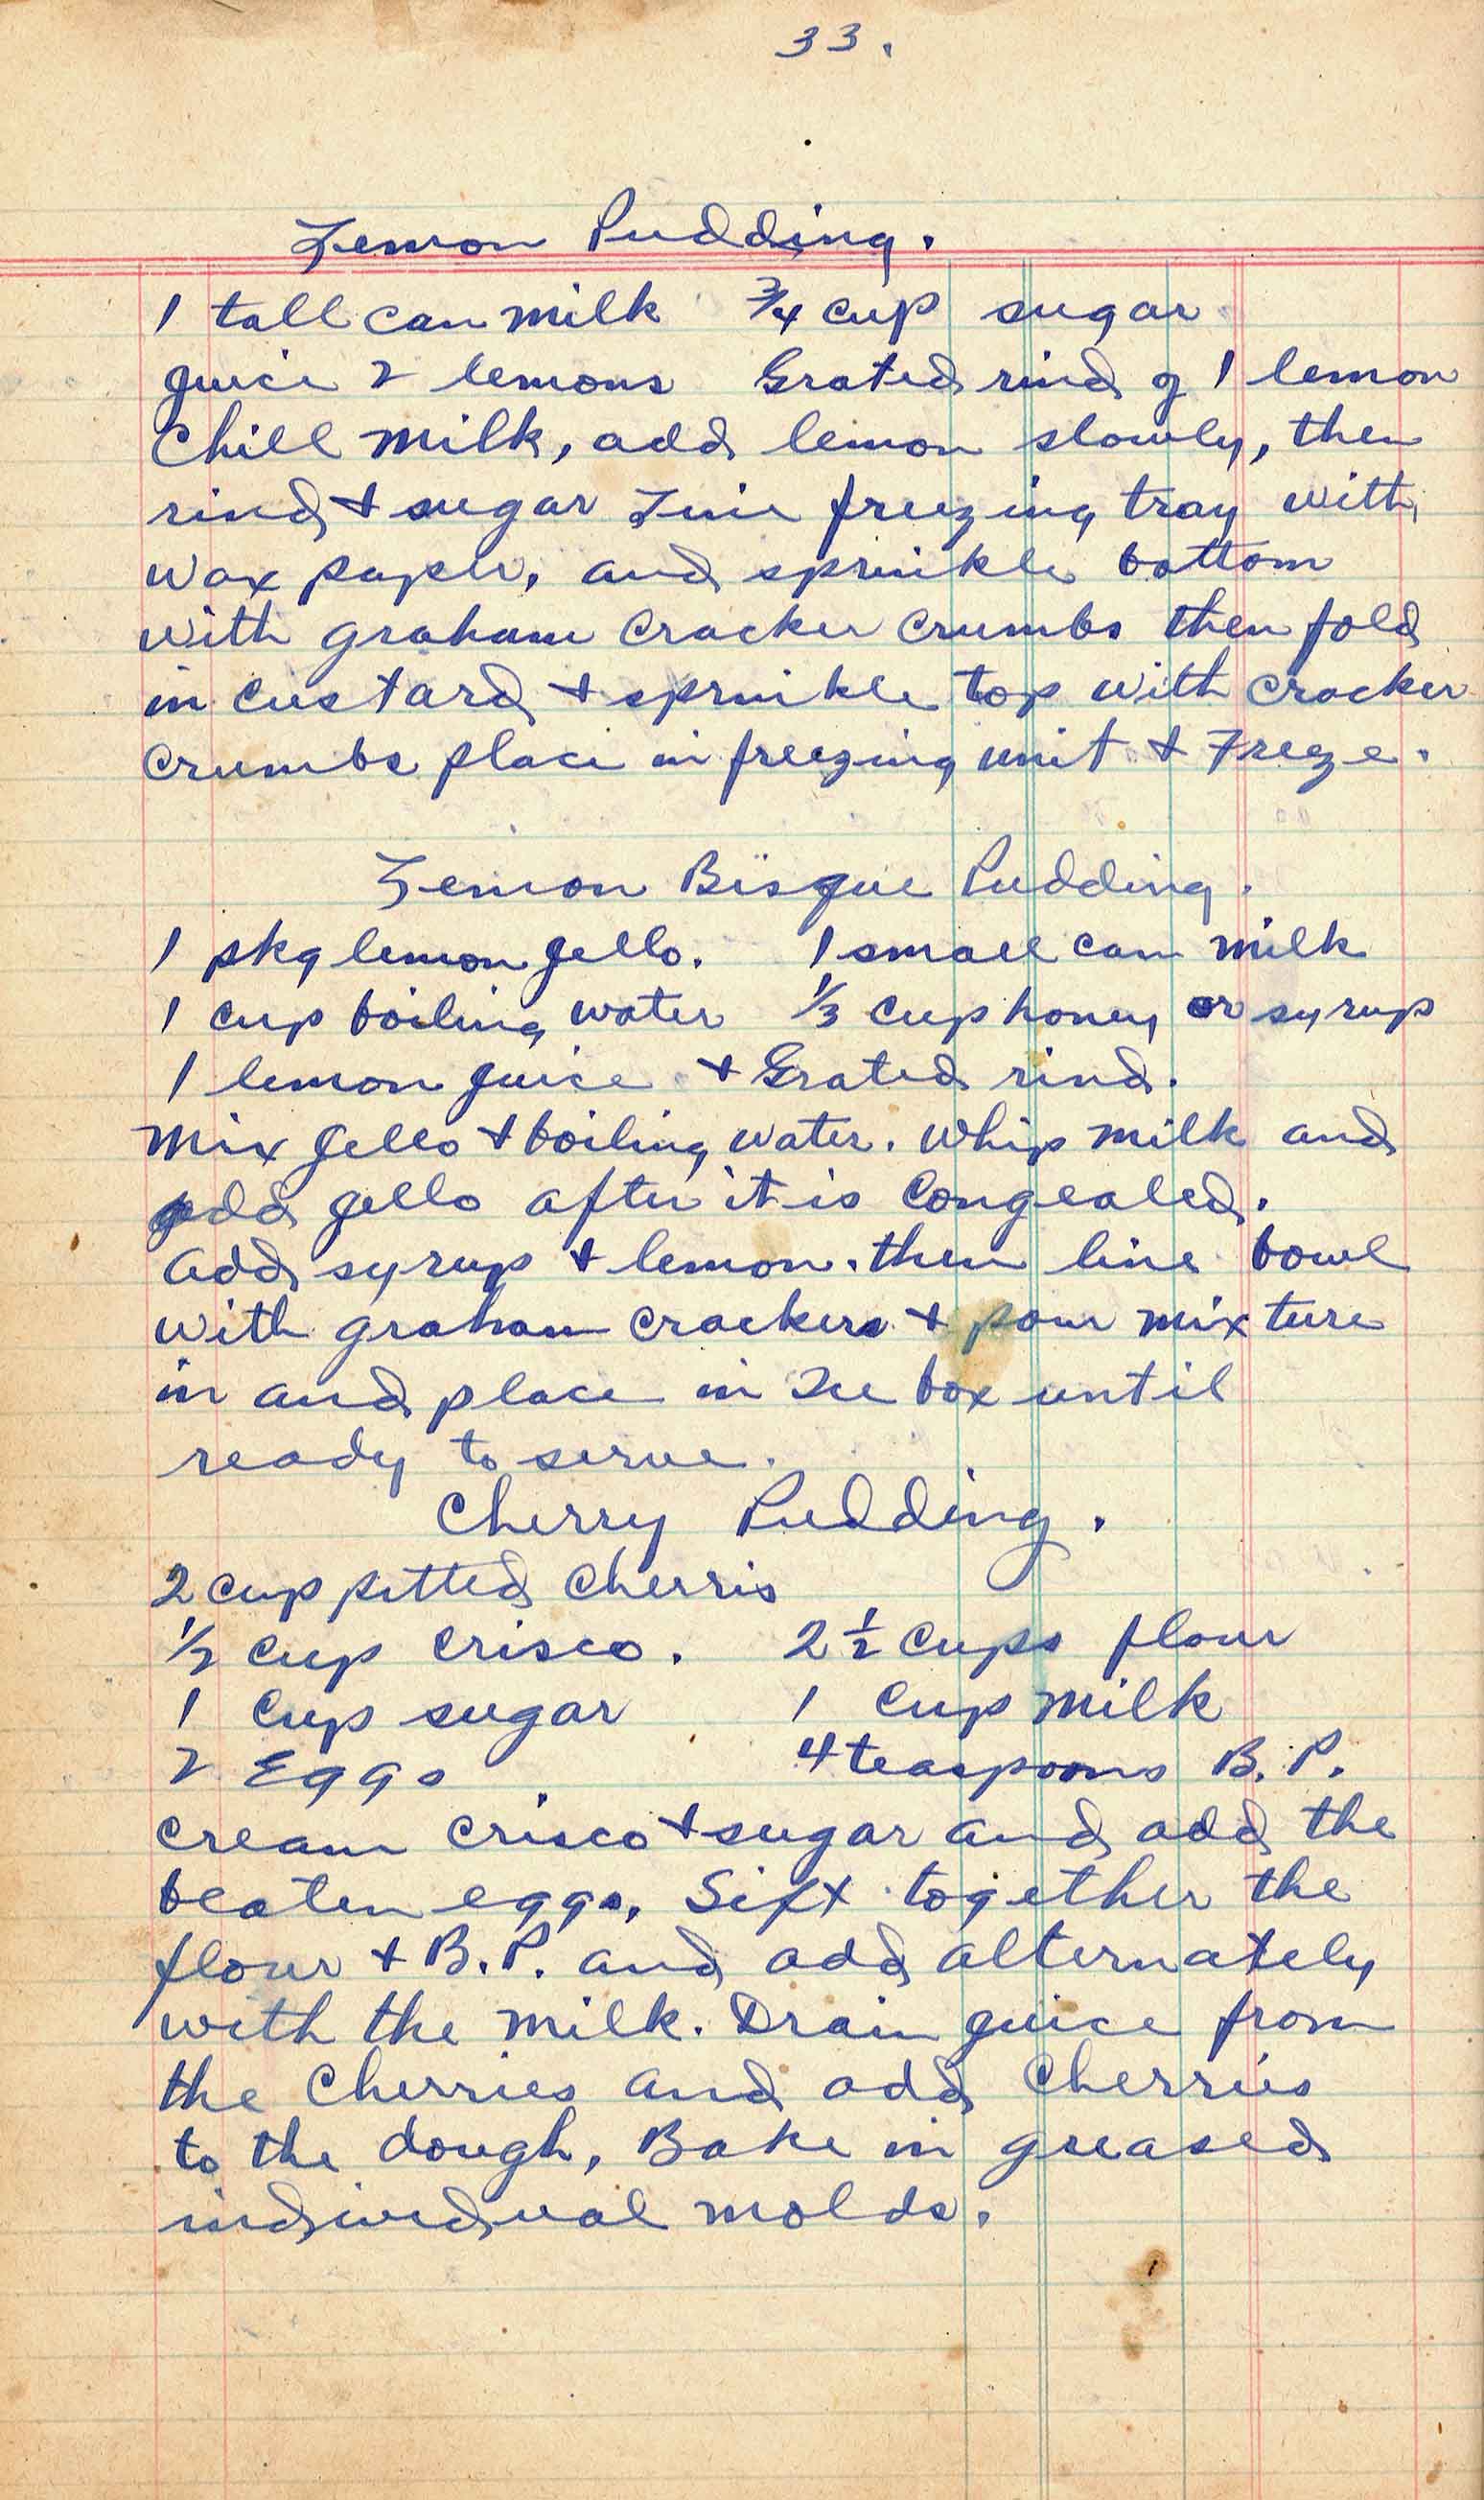 33.
Lemon Pudding.
1 tall can milk ¾ cup sugar
Juice 2 lemons Grated rind of 1 lemon
Chill milk, add lemon slowly, then
rind + sugar Line freezing tray with
wax paper, and sprinkle bottom
with graham cracker crumbs then fold
in custard + sprinkle top with cracker
crumbs place in freezing unit + Freeze.
Lemon Bisque Pudding.
1 pkg lemon Jello. 1 small can milk
1 cup boiling water ⅓ cup honey or syrup
1 lemon juice + Grated rind.
Mix Jello + boiling water. Whip milk and
add Jello after it is Congealed.
Add syrup + lemon. then line bowl
with graham crackers + pour mixture
in and place in Ice box until
ready to serve.
Cherry Pudding.
2 cup pitted Cherris
½ cup Crisco. 2½ cups flour
1 cup sugar 1 cup milk
2 Eggs 4 teaspoons B.P.
Cream Crisco + sugar and add the
beaten eggs, Sift together the
flour + B.P. and add alternately
with the milk. Drain juice from
the Cherries and add Cherries
to the dough, Bake in greased
individual molds.